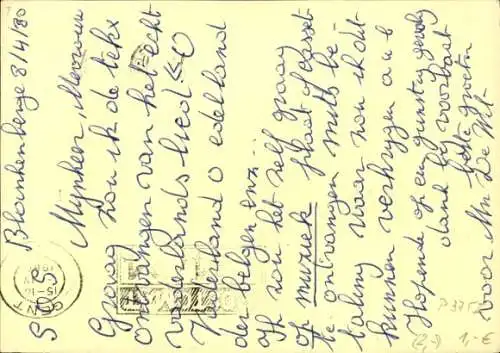 Blankenberge 8/4/80
Mijnheer, Mevrouw
Graag zou ik de tekst
ontvangen van het echt
vaderlands lied << O
Vaderland o edel land
der belgen enz..
Ik zou het zelf graag
op muziek plaat of casset
te ontvangen mits be-
taling waar zou ik dit
kunnen verkrijgen a u b
Hopende op en gunstig gevolg
dank bij voorbaat
beste groeten
voor Mr De Wit
GENT
15
(2,-) 1,- €